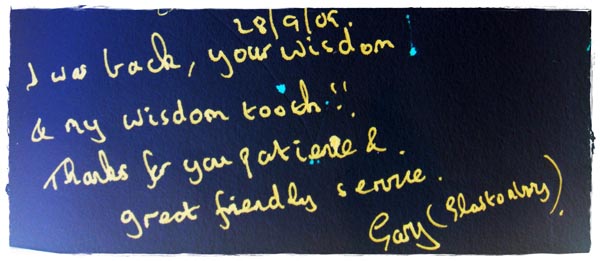 28/9/09.
I was back, your wisdom
& my wisdom tooth!!
Thanks for you patience &.
great friendly service.
Gary (Glastonbury).